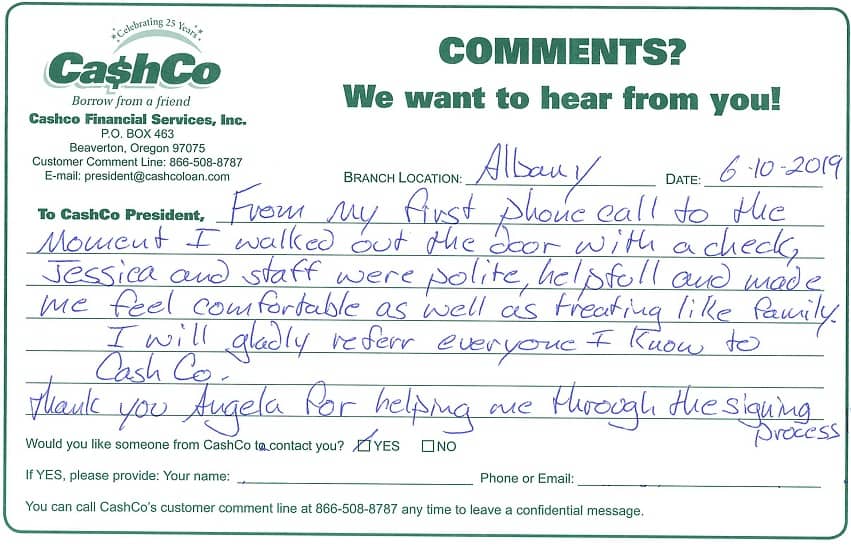 Celebrating 25 Years
Ca$hCo
Borrow from a friend
Cashco Financial Services, Inc.
P.O. BOX 463
Beaverton, Oregon 97075
Customer Comment Line: 866-508-8787
E-mail: president@cashcoloan.com
COMMENTS?
We want to hear from you!
BRANCH LOCATION: Albany DATE: 6-10-2019
To CashCo President, From my first phone call to the
Moment I walked out the door with a check,
Jessica and staff were polite, helpfull and made
me feel comfortable as well as treating like family.
I will gladly referr everyone I know to
Cash Co.
thank you Angela for helping me through the signing
process
Would you like someone from CashCo to contact you? YES NO
If YES, please provide: Your name: Phone or Email:
You can call CashCo's customer comment line at 866-508-8787 any time to leave a confidential message.